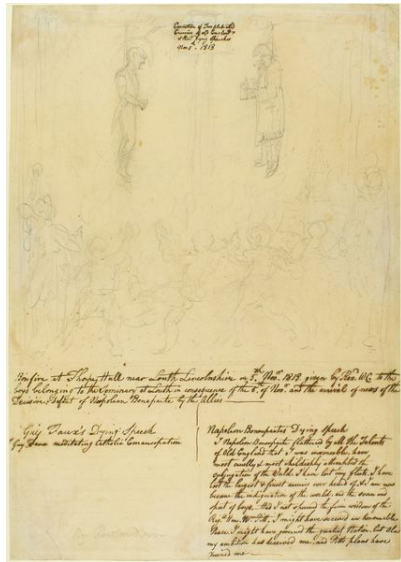 Execution of
Enemies of Old England &
Dying Speeches
Novr 5 - 1813
Bonfire at Thorpe Hall near Louth Lincolnshire on 5th Novr 1813 given by Rev. WC to the
boys belonging to the Seminary at Louth in consequence of the 5th of Novr and the arrival of news of the
Decisive Defeat of Napoleon Bonaparte by the Allies
Guy Faux's Dying Speech
Guy Faux meditating Catholic Emancipation
Napoleon Bonaparte's Dying Speech
I Napoleon Bonaparte flattered by all the Talents
of Old England that I was invincible have
most cruelly & most childishly attempted the
subjugation of the World. I have lost my fleets, I have
lost the largest & finest armies ever heard of & I am now
become the indignation of the world, and the scorn and
sport of boys. Had I not spurned the firm wisdom of the
Right Hon. Wm Pitt, I might have secured an honourable
Peace I might have governed the greatest Nation, but alas
my ambition has deceived me and Pitts plans have
ruined me